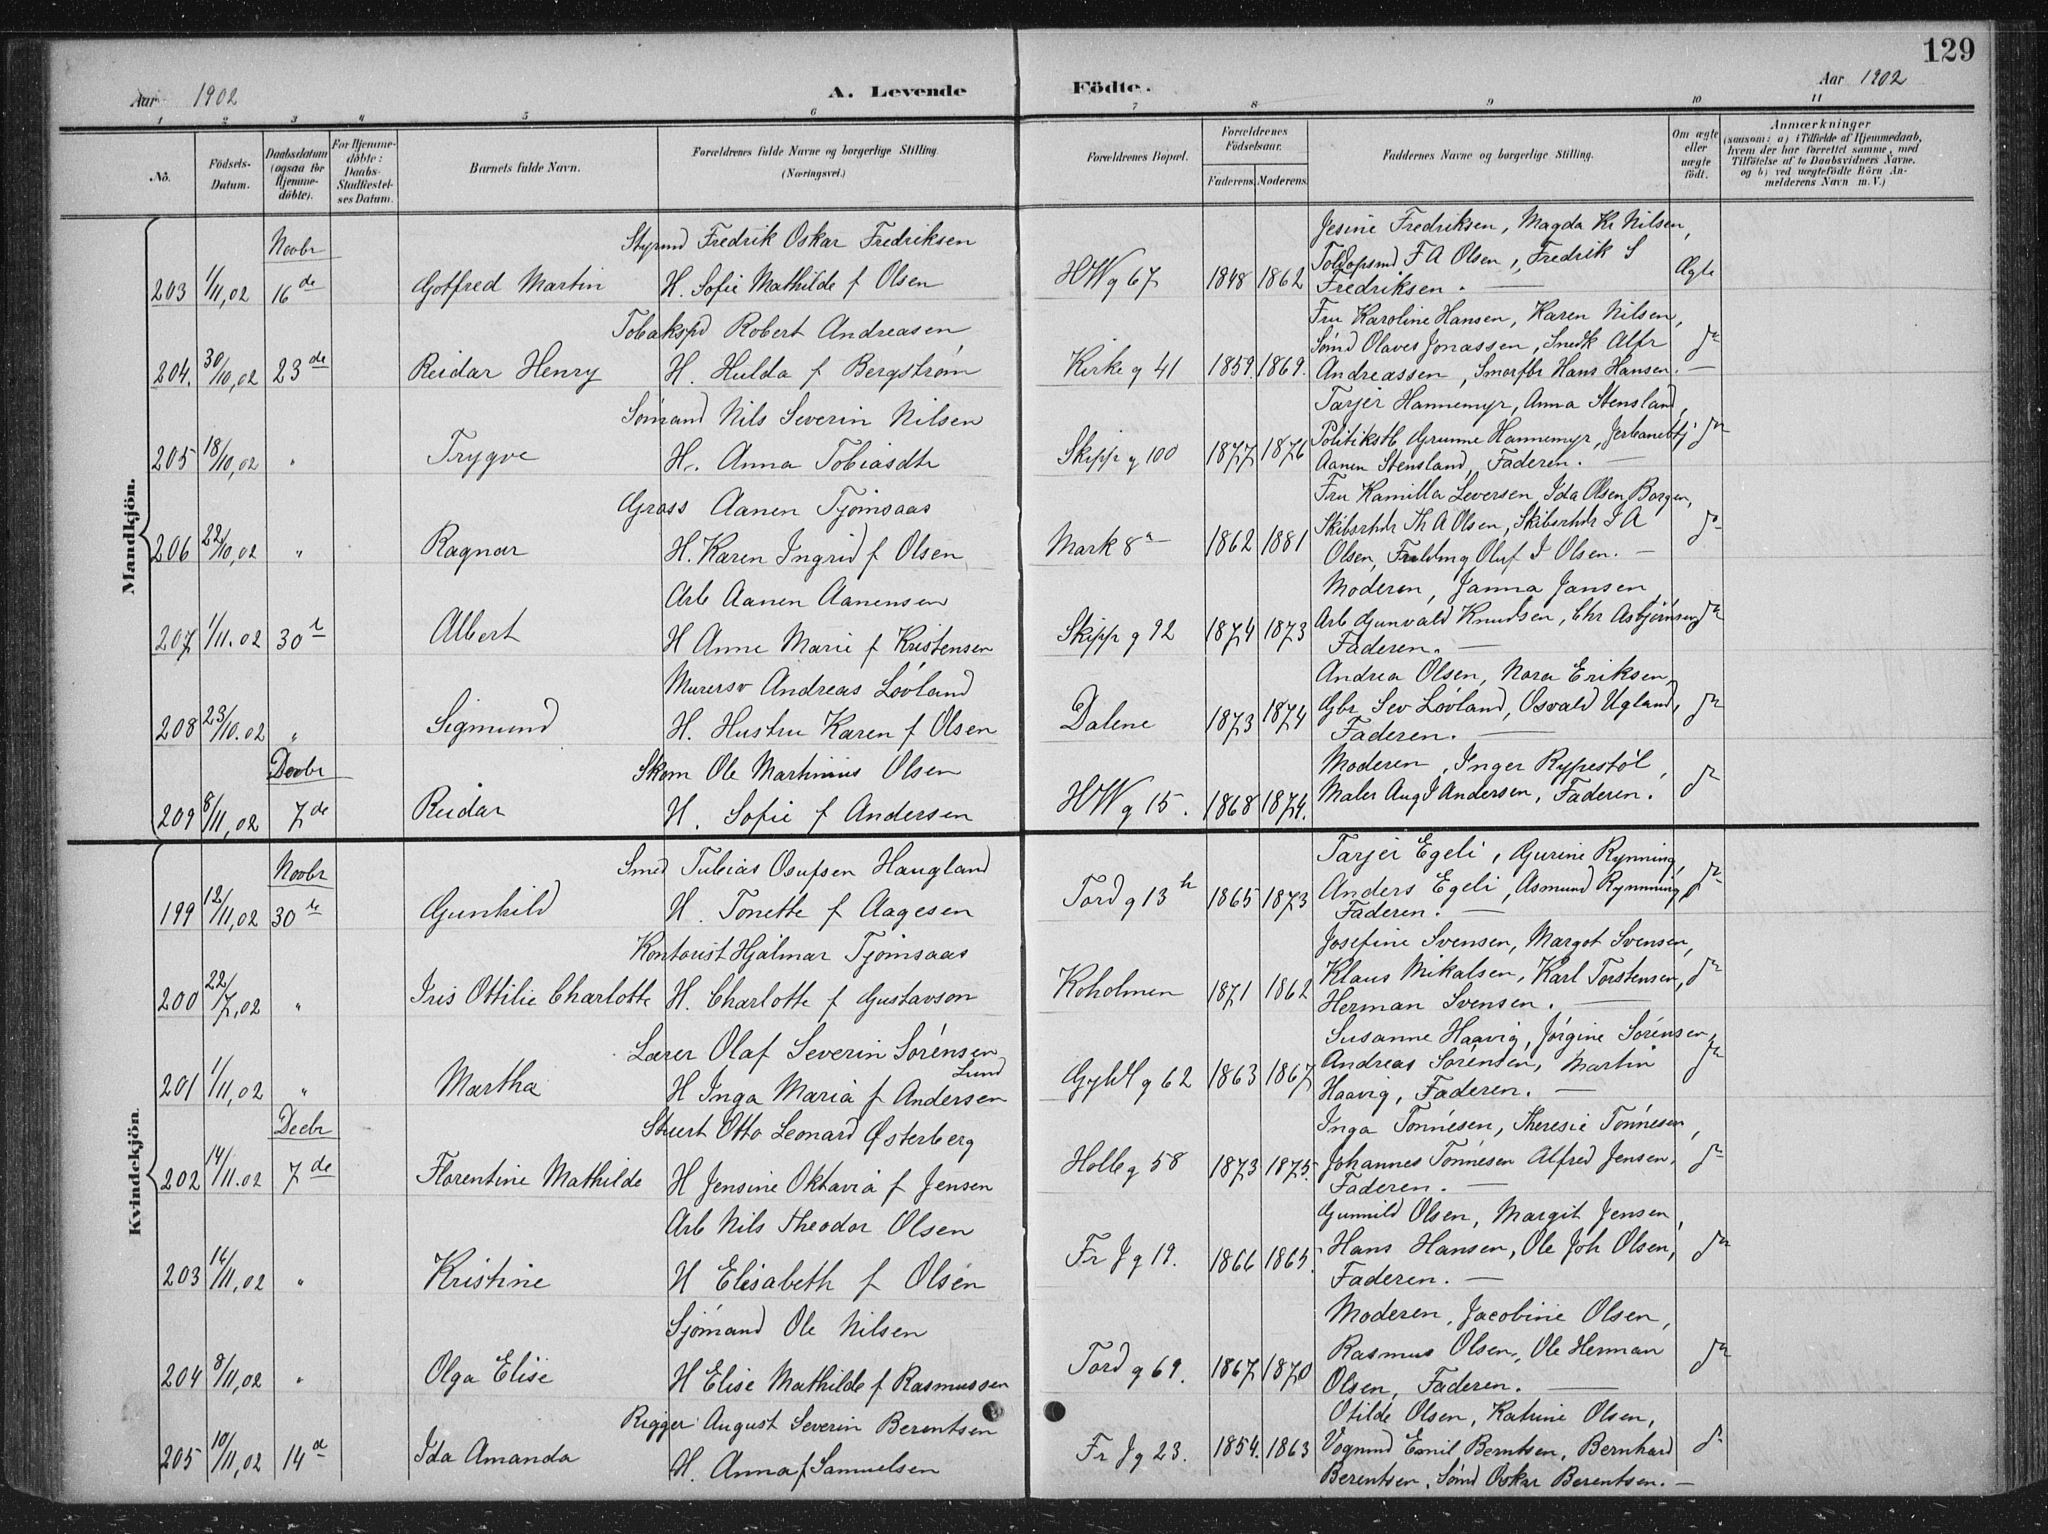 129
Aar 1902
A. Levende
Födte.
Aar 1902
1 2 3 4 5 6 7 8 9 10 11
No.
Födsels-Datum.
Daabsdatum (ogsaa for Hjemme-döbte).
For Hjemme-döbte: Daabs-Stadfæstel-ses Datum.
Barnets fulde Navn.
Forældrenes fulde Navne og borgerlige Stilling. (Næringsvei.)
Forældrenes Bopæl.
Forældrenes Födselsaar.
Faderens. Moderens.
Faddernes Navne og borgerlige Stilling.
Om ægte eller uægte födt.
Anmærkninger
(saasom: a) i Tilfælde af Hjemmedaab, hvem der har forrettet samme, med Tilföielse af to Daabsvidners Navne. og b) ved uægtefödte Börn An-melderens Navn m. V.)
Mandkjön.
Novbr
Styrmd Fredrik Oskar Fredriksen
Jesine Fredriksen, Magda Kr Nilsen,
203 1/11,02 16de Gotfred Martin H. Sofie Mathilde f Olsen HWg 67 1848 1862 Toldopsmd F A Olsen, Fredrik S Ægte
Fredriksen. —
Tobakspd Robert Andreasen
Fru Karoline Hansen, Karen Nilsen,
204. 30/10,02 23de Reidar Henry H. Hulda f Bergstrøm Kirkeg 41 1859. 1869. Sömd Olaves Jonassen, Snedk Alfr
Andreassen, Smørfbr Hans Hansen. —
Sömand Nils Severin Nilsen
Tarjer Hannemyr, Anna Stensland,
205 18/10,02 " Trygve H. Anna Tobiasdtr Skippg 100 1877 1876 Politikstb Grunne Hannemyr,
Aanen Stensland, Faderen. —
Gross Aanen Tjömsaas
Fru Kamilla Seversen, Ida Olsen Borgen,
206 22/10,02 " Ragnar H. Karen Ingrid f Olsen Mark 8a 1862 1881 Skibsrhdr Th A Olsen, Skibsrhdr I A
Olsen, Fuldmg Oluf I Olsen. —
Arb Aanen Aanensen
Moderen, Janna Jansen
207 1/11.02 30r Albert H Anne Marie f Kristensen Skippg 92 1874 1873 Arb Gunvald Knudsen, Chr Asbjörnsen
Faderen. —
Murersv Andreas Lövland
Andrea Olsen, Nora Eriksen,
208 23/10.02 " Sigmund H. Hustru Karen f Olsen Dalene 1873 1874 Gbr Sev Lövland, Osvald Ugland,
Faderen. —
Decbr
Skom Ole Martinius Olsen
Moderen, Inger Rypestöl,
209 8/11,02 7de Reidar H. Sofie f Andersen HWg 15. 1868 1874. Maler Aug I Andersen, Faderen.
Kvindekjön.
Novbr
Smed Tobias Osufsen Haugland
Tarjer Egeli, Gurine Rynning,
199 12/11,02 30r Gunhild H. Tonette f Aagesen Tordg 13b 1865 1873 Anders Egeli, Asmund Rynning,
Faderen. —
Kontorist Hjalmar Tjömsaas
Josefine Svensen, Margot Svensen,
200 22/7,02 " Iris Ottilie Charlotte H. Charlotte f Gustavson Koholmen 1871 1862 Klaus Mikalsen, Karl Torstensen,
Herman Svensen. —
Lærer Olaf Severin Sörensen Lund
Susanne Haavig, Jörgine Sörensen,
201 1/11,02 " Martha H Inga Maria f Andersen Gyldl g 62 1863 1867 Andreas Sörensen, Martin
Haavig, Faderen. —
Decbr
Stuert Otto Leonard Østerberg
Inga Tönnesen, Theresie Tönnesen,
202 14/11.02 7de Florentine Mathilde H Jensine Oktavia f Jensen Holleg 58 1873 1875. Johannes Tönnesen Alfred Jensen.
Faderen. —
Arb Nils Theodor Olsen
Gunnild Olsen, Margit Jensen,
203 16/11,02 " Kristine H Elisabeth f Olsen Fr Jg 19. 1866 1865. Hans Hansen, Ole Joh Olsen,
Faderen. —
Sjömand Ole Nilsen
Moderen, Jacobine Olsen,
204 8/11,02 " Olga Elise H Elise Mathilde f Rasmussen Tordg 69. 1867 1870 Rasmus Olsen, Ole Herman
Olsen, Faderen. —
Rigger August Severin Berentsen
Otilde Olsen, Katrine Olsen,
205 10/11,02 14d Ida Amanda H. Anna f Samuelsen Fr Jg 23. 1854. 1863 Vognmd Emil Berntsen, Bernhard
Berentsen, Sömd Oskar Berentsen. —